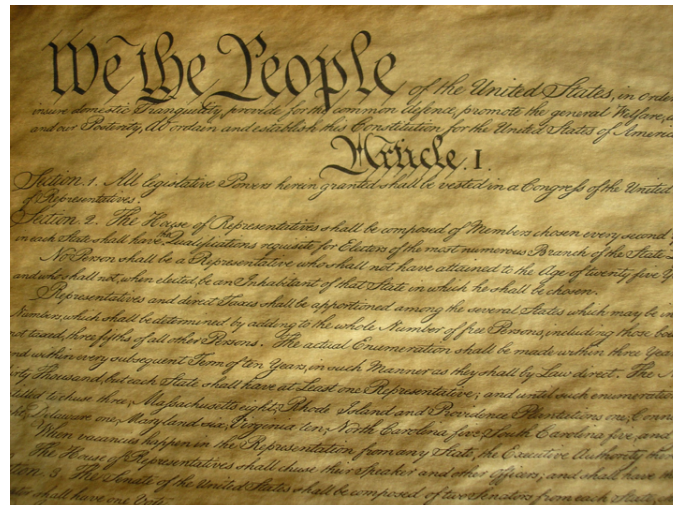 We the People of the United States, in Orde
insure domestic Tranquility, provide for the common defence, promote the general Welfare, a
and our Posterity, do ordain and establish this Constitution for the United States of America
Article. I.
Section. 1. All legislative Powers herein granted shall be vested in a Congress of the United
of Representatives.
Section. 2. The House of Representatives shall be composed of Members chosen every second
in each State shall have Qualifications requisite for Electors of the most numerous Branch of the State
No Person shall be a Representative who shall not have attained to the Age of twenty five Y
and who shall not, when elected, be an Inhabitant of that State in which he shall be chosen.
Representatives and direct Taxes shall be apportioned among the several States which may be in
Numbers, which shall be determined by adding to the whole Number of free Persons, including those bou
not taxed, three fifths of all other Persons. The actual Enumeration shall be made within three Year
nd within every subsequent Term of ten Years, in such Manner as they shall by Law direct. The
rty Thousand, but each State shall have at Least one Representative; and until such enumeration
titled to chuse three, Massachusetts eight, Rhode Island and Providence Plantations one, Conne
ht, Delaware one, Maryland six, Virginia ten, North Carolina five, South Carolina five, and
When vacancies happen in the Representation from any State, the Executive Authority the
The House of Representatives shall chuse their Speaker and other Officers; and shall have the
tion. 3. The Senate of the United States shall be composed of two Senators from each State, ch
tor shall have one Vote.